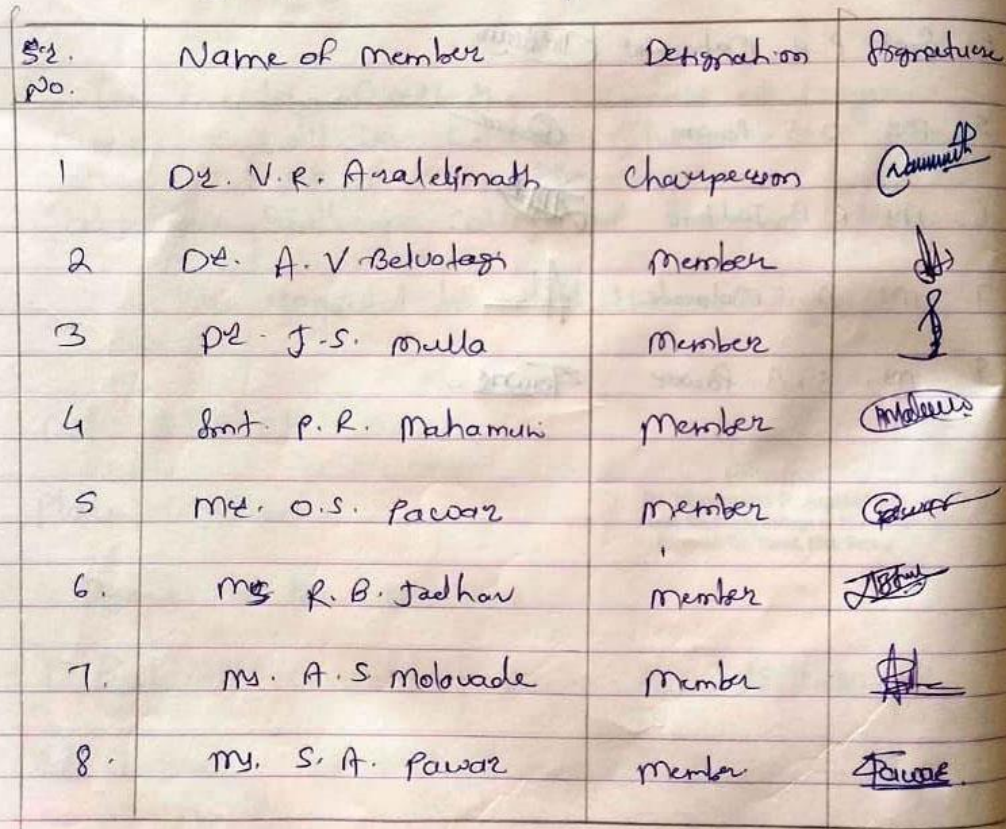 Sr. Name of member Designation Signature
No.
1 Dr. V.R. Aralelimath Chairperson
2 Dr. A. V Belvotagi Member
3 Dr. J.S. Mulla Member
4 Smt. P.R. Mahamuni Member
5 Mr. O.S. Pawar Member Pawar
6. Ms R.B. Jadhav Member
7. Ms. A.S Molavade Member
8. Ms. S.A. Pawar Member Pawar